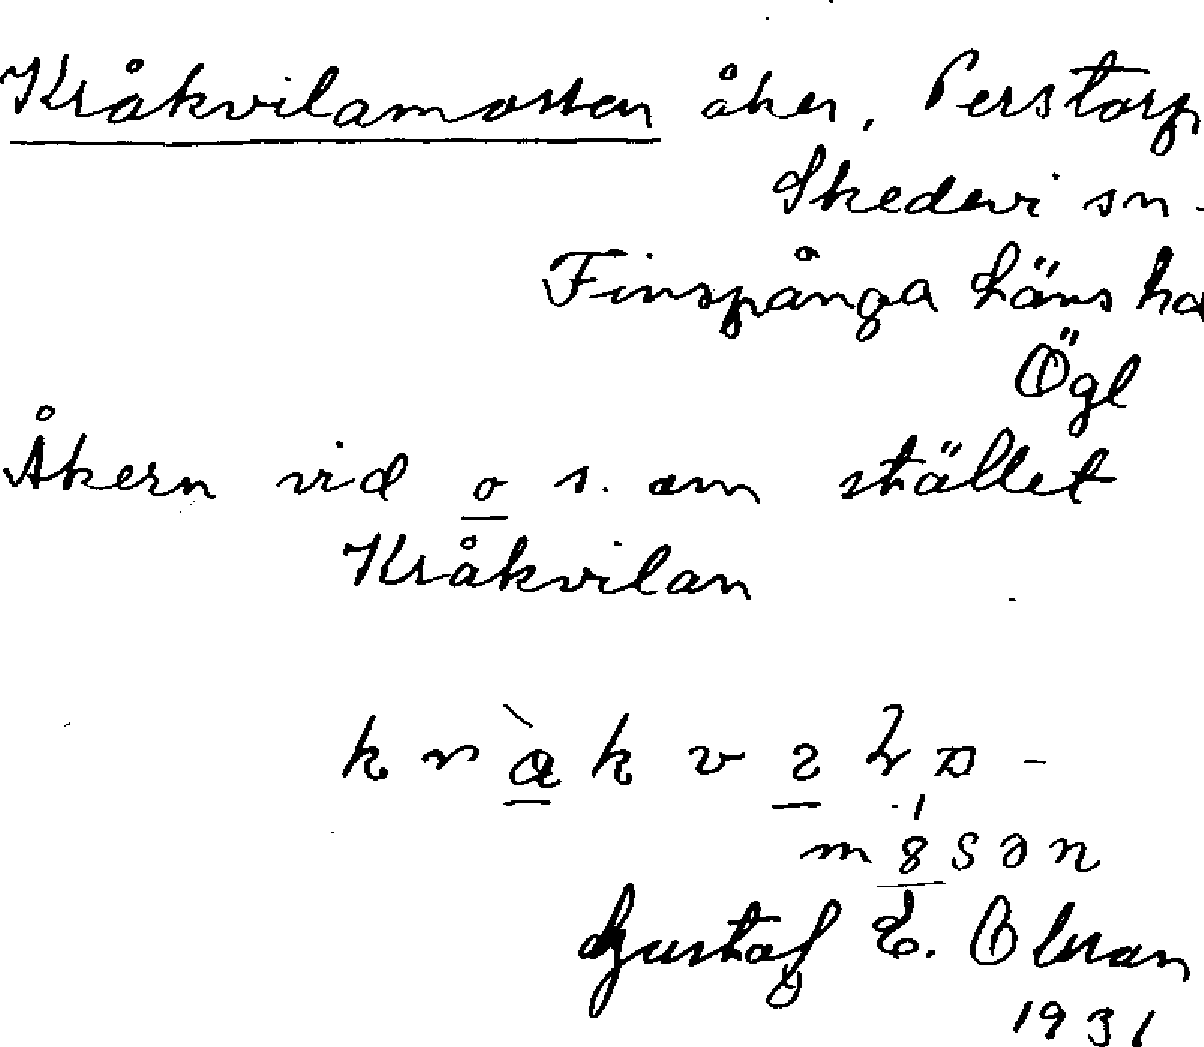 Kråkvilamossen åker, Perstorp
Skedevi sn
Finspånga läns hd
Ögl
Åkern vid o s. om stället
Kråkvilan
Gustaf E. Olsson
1931